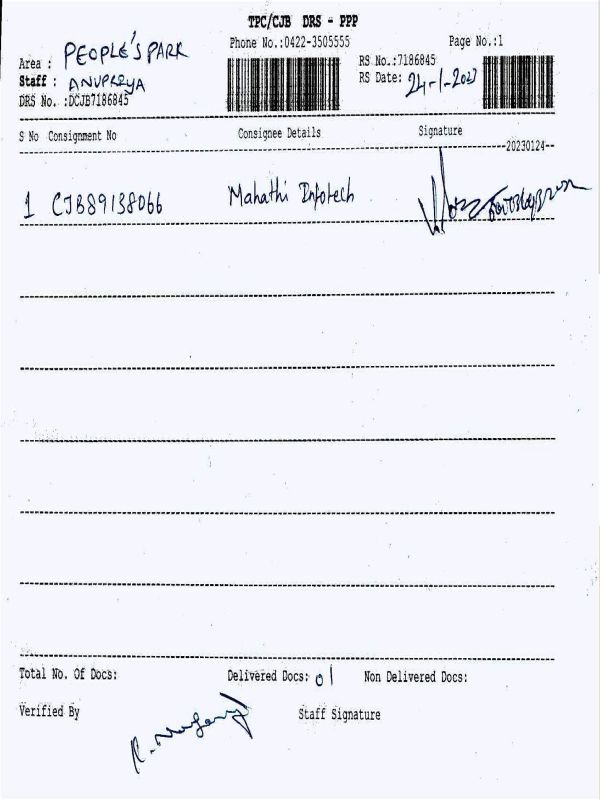 TPC/CJB DRS - PPP
Phone No.:0422-3505555 Page No.:1
Area : PEOPLE'S PARK
RS No.:7186845
Staff : ANUPREYA
RS Date: 24-1-2023
DRS No. :DCJB7186845
S No Consignment No Consignee Details Signature
20230124
1 CJB89138066 Mahathi Infotech
Total No. Of Docs: Delivered Docs: 01 Non Delivered Docs:
Verified By Staff Signature